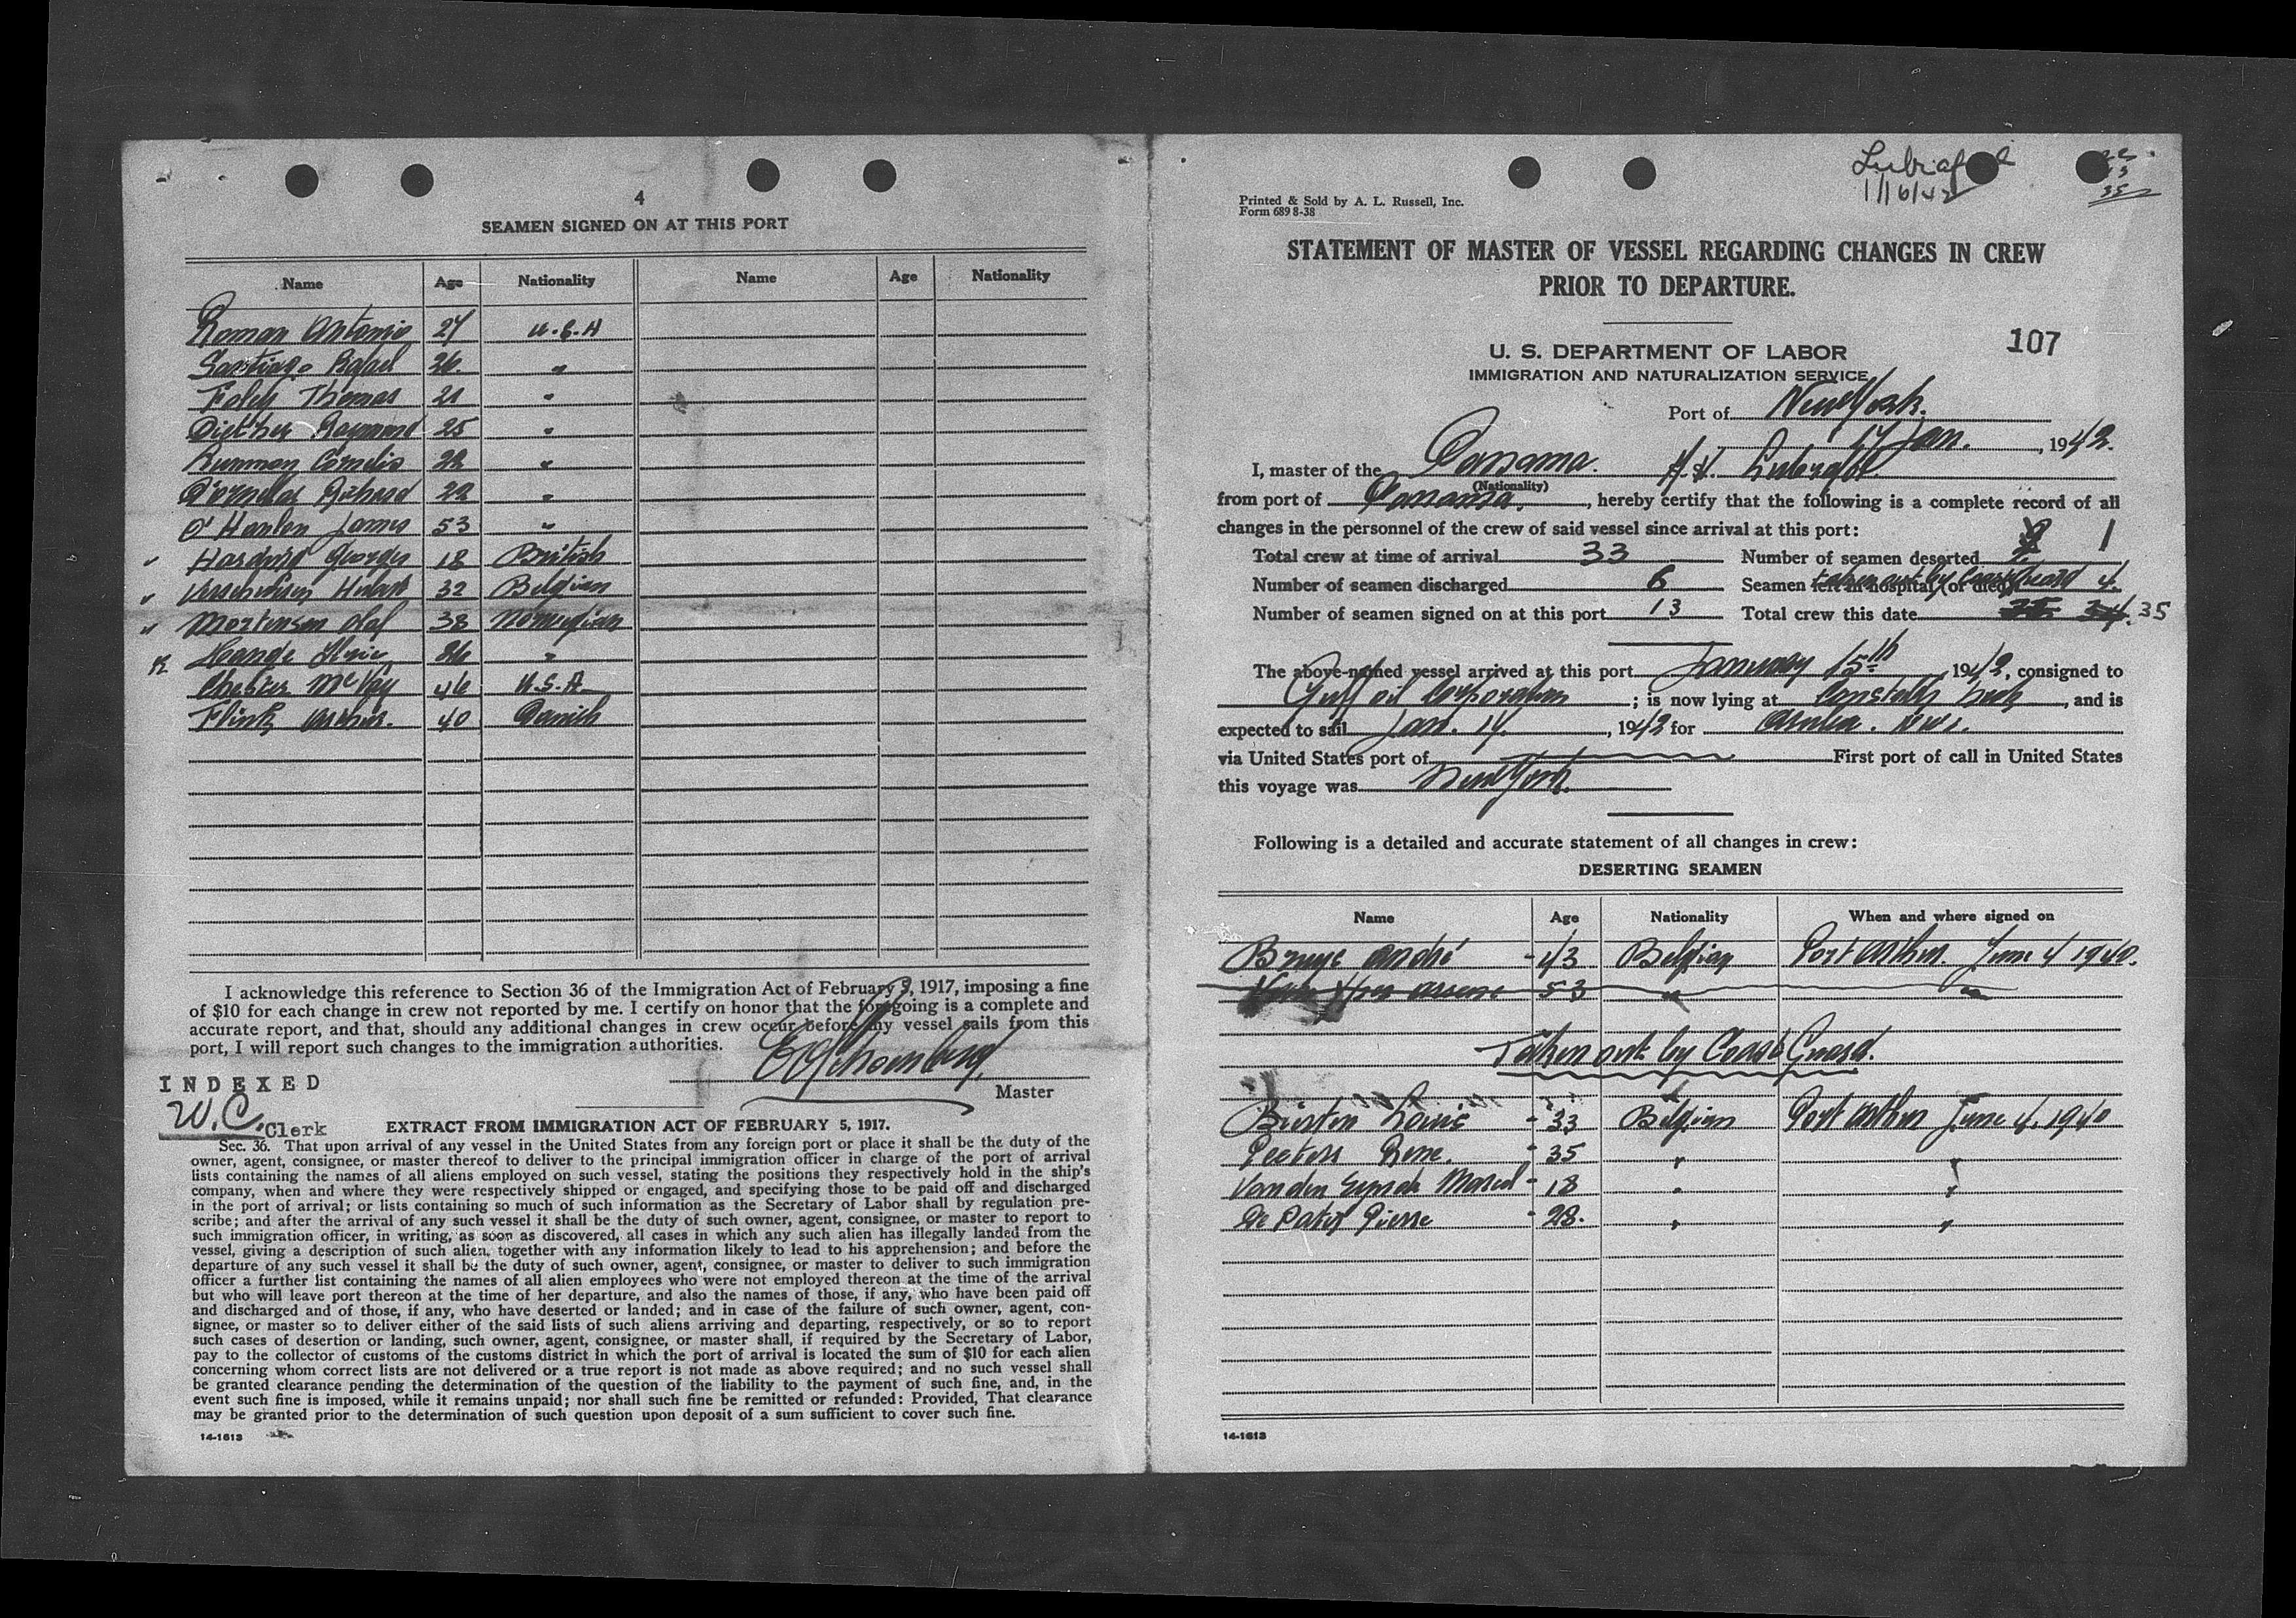 4
SEAMEN SIGNED ON AT THIS PORT
Name Age Nationality Name Age Nationality
Roman Antonio 27 U.S.A
Santiago Rafael 26 "
Foley Thomas 21 "
Raymond 25 "
28 "
Richard 22 "
O' Hanlon James 53 "
Harding George 18 British
32 Belgian
Mortensen Olaf 38 Norwegian
"
Chester McVay 46 U.S.A.
Flink 40 Danish
I acknowledge this reference to Section 36 of the Immigration Act of February 5, 1917, imposing a fine
of $10 for each change in crew not reported by me. I certify on honor that the foregoing is a complete and
accurate report, and that, should any additional changes in crew occur before my vessel sails from this
port, I will report such changes to the immigration authorities.
Master
INDEXED
W.C. Clerk
EXTRACT FROM IMMIGRATION ACT OF FEBRUARY 5, 1917.
Sec. 36. That upon arrival of any vessel in the United States from any foreign port or place it shall be the duty of the
owner, agent, consignee, or master thereof to deliver to the principal immigration officer in charge of the port of arrival
lists containing the names of all aliens employed on such vessel, stating the positions they respectively hold in the ship's
company, when and where they were respectively shipped or engaged, and specifying those to be paid off and discharged
in the port of arrival; or lists containing so much of such information as the Secretary of Labor shall by regulation pre-
scribe; and after the arrival of any such vessel it shall be the duty of such owner, agent, consignee, or master to report to
such immigration officer, in writing, as soon as discovered, all cases in which any such alien has illegally landed from the
vessel, giving a description of such alien, together with any information likely to lead to his apprehension; and before the
departure of any such vessel it shall be the duty of such owner, agent, consignee, or master to deliver to such immigration
officer a further list containing the names of all alien employees who were not employed thereon at the time of the arrival
but who will leave port thereon at the time of her departure, and also the names of those, if any, who have been paid off
and discharged and of those, if any, who have deserted or landed; and in case of the failure of such owner, agent, con-
signee, or master so to deliver either of the said lists of such aliens arriving and departing, respectively, or so to report
such cases of desertion or landing, such owner, agent, consignee, or master shall, if required by the Secretary of Labor,
pay to the collector of customs of the customs district in which the port of arrival is located the sum of $10 for each alien
concerning whom correct lists are not delivered or a true report is not made as above required; and no such vessel shall
be granted clearance pending the determination of the question of the liability to the payment of such fine, and, in the
event such fine is imposed, while it remains unpaid; nor shall such fine be remitted or refunded: Provided, That clearance
may be granted prior to the determination of such question upon deposit of a sum sufficient to cover such fine.
14-1613
Printed & Sold by A. L. Russell, Inc.
Form 689 8-38
1/16/42
35
STATEMENT OF MASTER OF VESSEL REGARDING CHANGES IN CREW
PRIOR TO DEPARTURE.
107
U. S. DEPARTMENT OF LABOR
IMMIGRATION AND NATURALIZATION SERVICE
Port of New York.
17 Jan. , 1942.
I, master of the Panama.
(Nationality)
from port of Panama. , hereby certify that the following is a complete record of all
changes in the personnel of the crew of said vessel since arrival at this port:
Total crew at time of arrival 33 Number of seamen deserted 1
Number of seamen discharged 6 Seamen left in hospital (or died) taken out by Coast Guard 4.
Number of seamen signed on at this port 13 Total crew this date 34. 35
The above-named vessel arrived at this port January 15th , 1942, consigned to
Gulf oil Corporation ; is now lying at , and is
expected to sail Jan. 17. , 1942 for Aruba. N.W.I.
via United States port of First port of call in United States
this voyage was New York.
Following is a detailed and accurate statement of all changes in crew:
DESERTING SEAMEN
Name Age Nationality When and where signed on
André 43 Belgian Port Arthur. June 4 1940.
53 " "
Taken out by Coast Guard.
Louis 33 Belgian Port Arthur June 4. 1940
Peeters Rene. 35 " "
Marcel 18 " "
Pierre 28. " "
14-1613